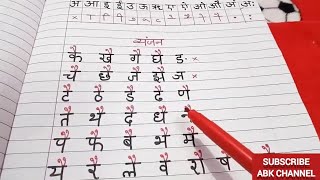 अ आ इ ई उ ऊ ऋ ए ऐ ओ औ अं अः
× ा ि ी ु ू ृ े ै ो ौ ं ः
व्यंजन
कै खै गै घै ङ ×
चै छै जै झै ञ ×
टै ठै डै ढै णै
तै थै दै धै नै
पै फै बै भै मै
यै रै लै वै शै षै
SUBSCRIBE
ABK CHANNEL